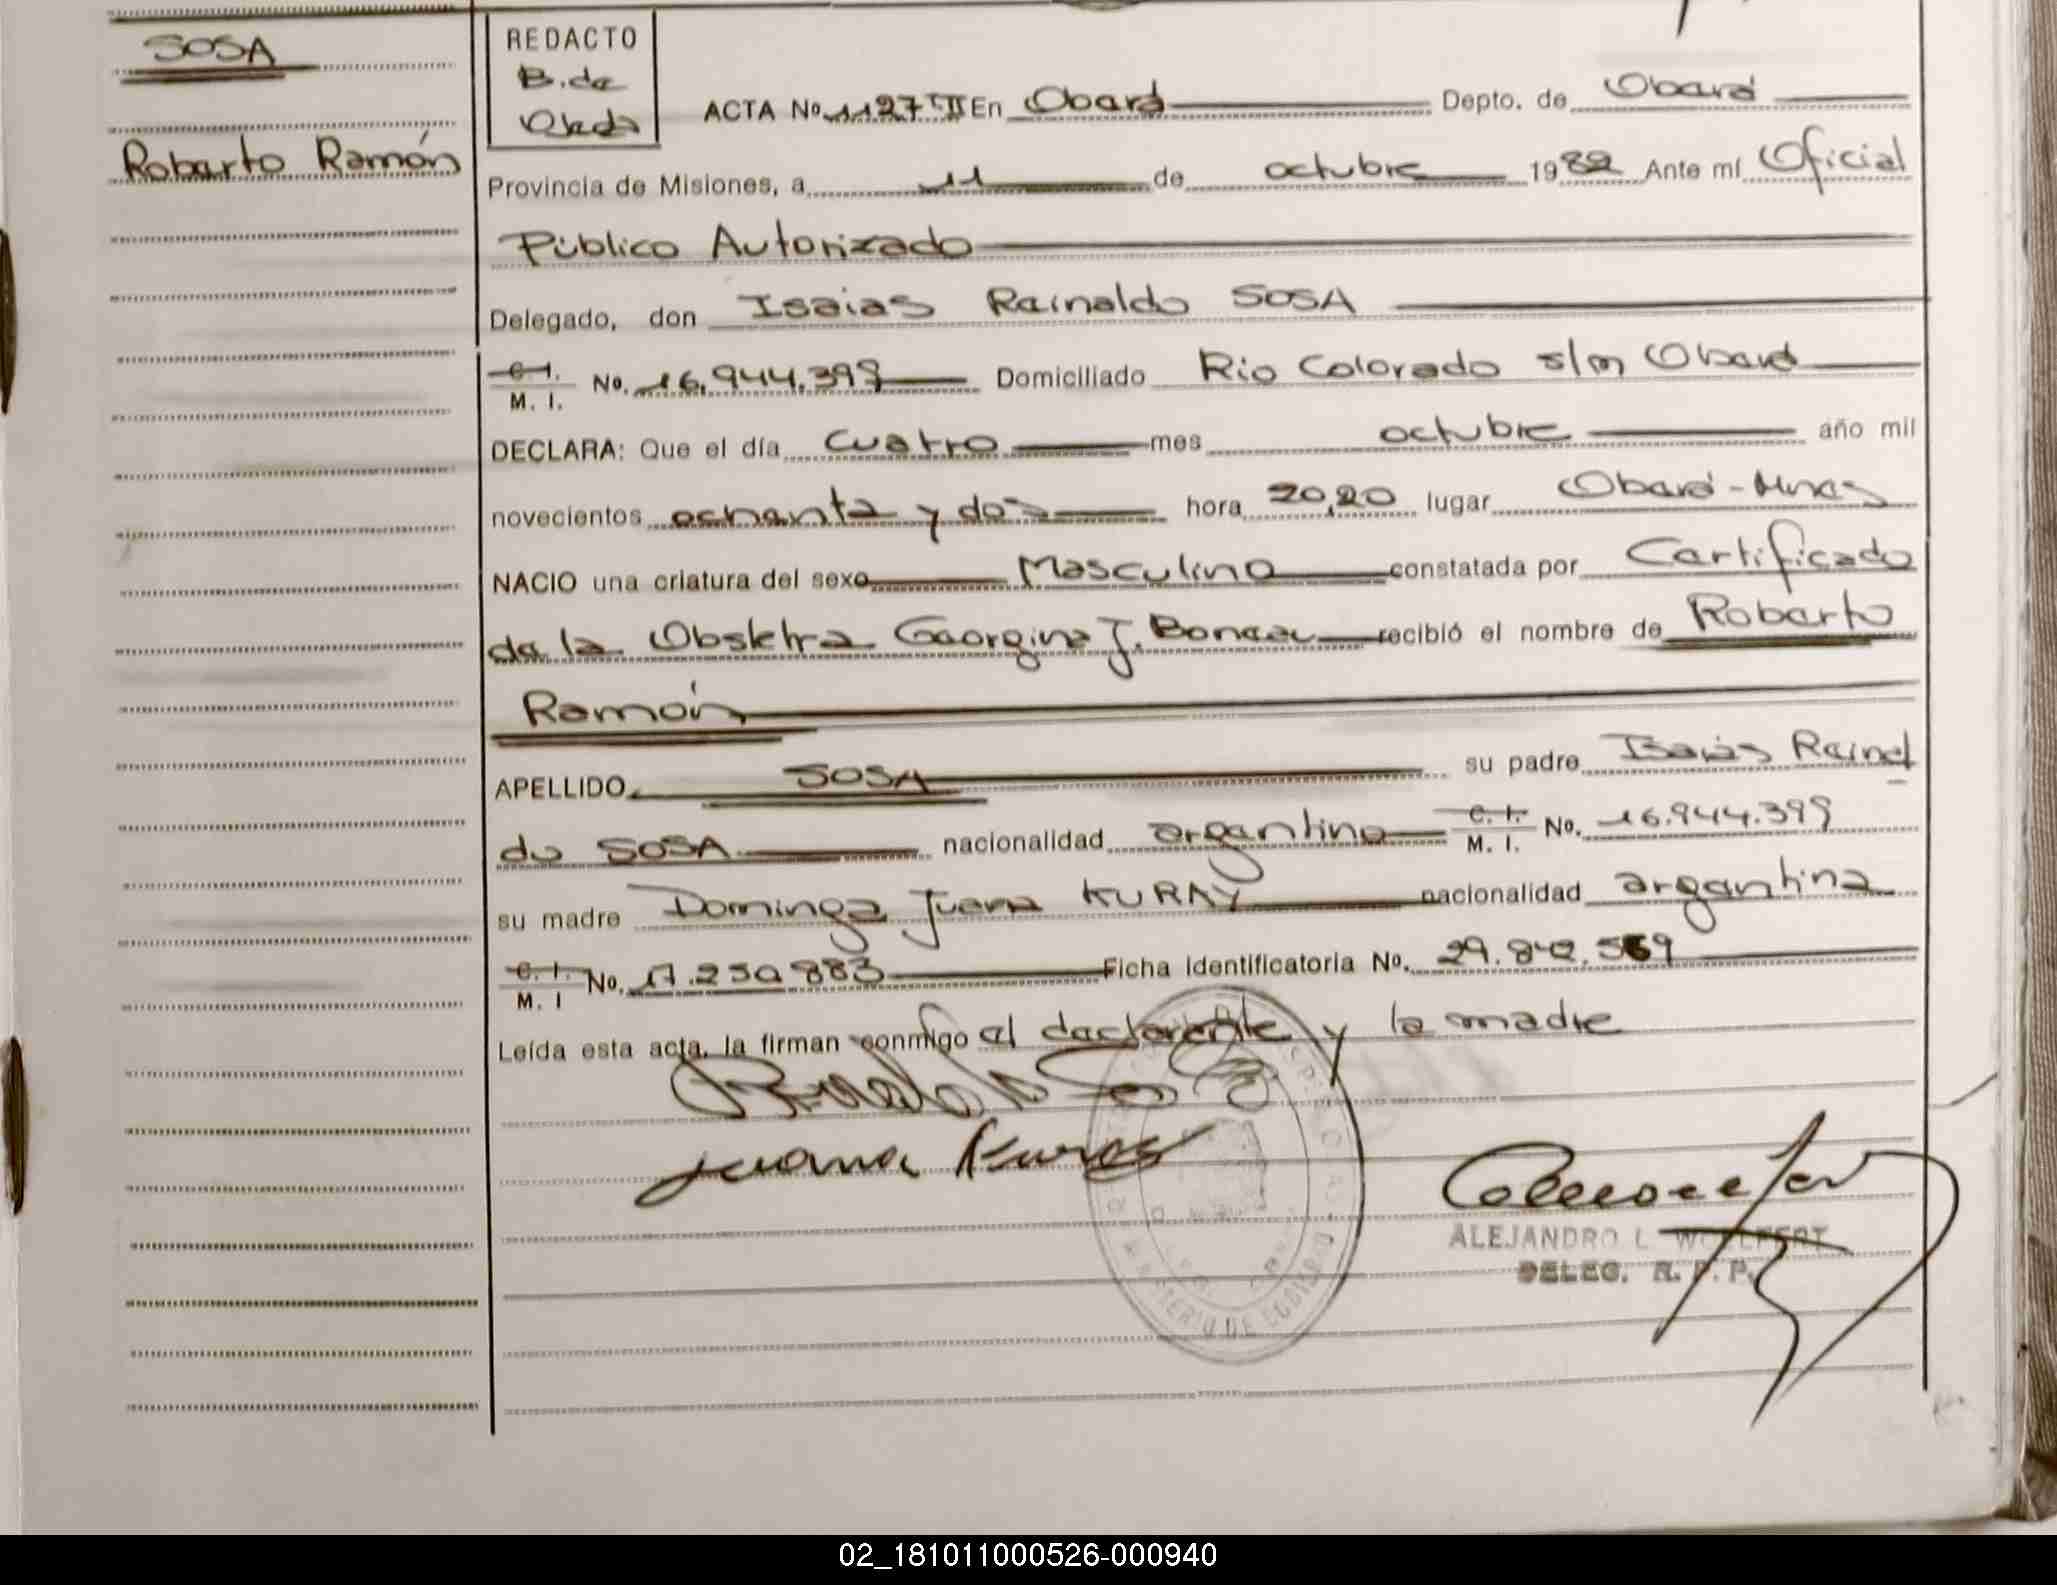 SOSA
Roberto Ramón
REDACTO
B. de
Olada
ACTA No. 1127 TII En Oberá Depto. de Oberá
Provincia de Misiones, a 11 de octubre 1982 Ante mí Oficial
Público Autorizado
Delegado, don Isaias Rainaldo SOSA
C. I. M. I. No. 16.944.399 Domiciliado Rio Colorado s/m Oberá
DECLARA: Que el día cuatro mes octubre año mil
novecientos ochenta y dos hora 20,20 lugar Oberá - Mnes
NACIO una criatura del sexo Masculino constatada por Certificado
de la Obstetra Georgina J. recibió el nombre de Roberto
Ramón
APELLIDO SOSA su padre Isaias Rainal
do SOSA nacionalidad argentino C. I. M. I. No. 16.944.399
su madre Dominga Juana KURAY nacionalidad argentina
C. I. M. I No. 17.250.883 Ficha Identificatoria No. 29.842.569
Leída esta acta, la firman conmigo el declarante y la madre
Juana
ALEJANDRO L. WOLFERT
DELEG. R. P. P.
MINISTERIO DE GOBIERNO
02_181011000526-000940